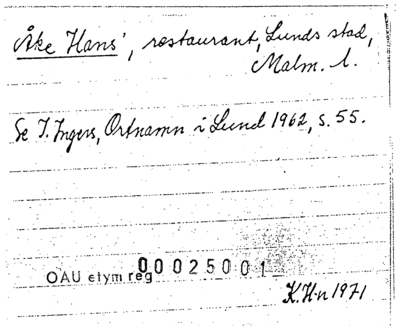 Åke Hans', restaurant, Lunds stad,
Malm. l.
Se I. Ingers, Ortnamn i Lund 1962, s. 55.
OAU etym reg 00025001
K.H-n 1971